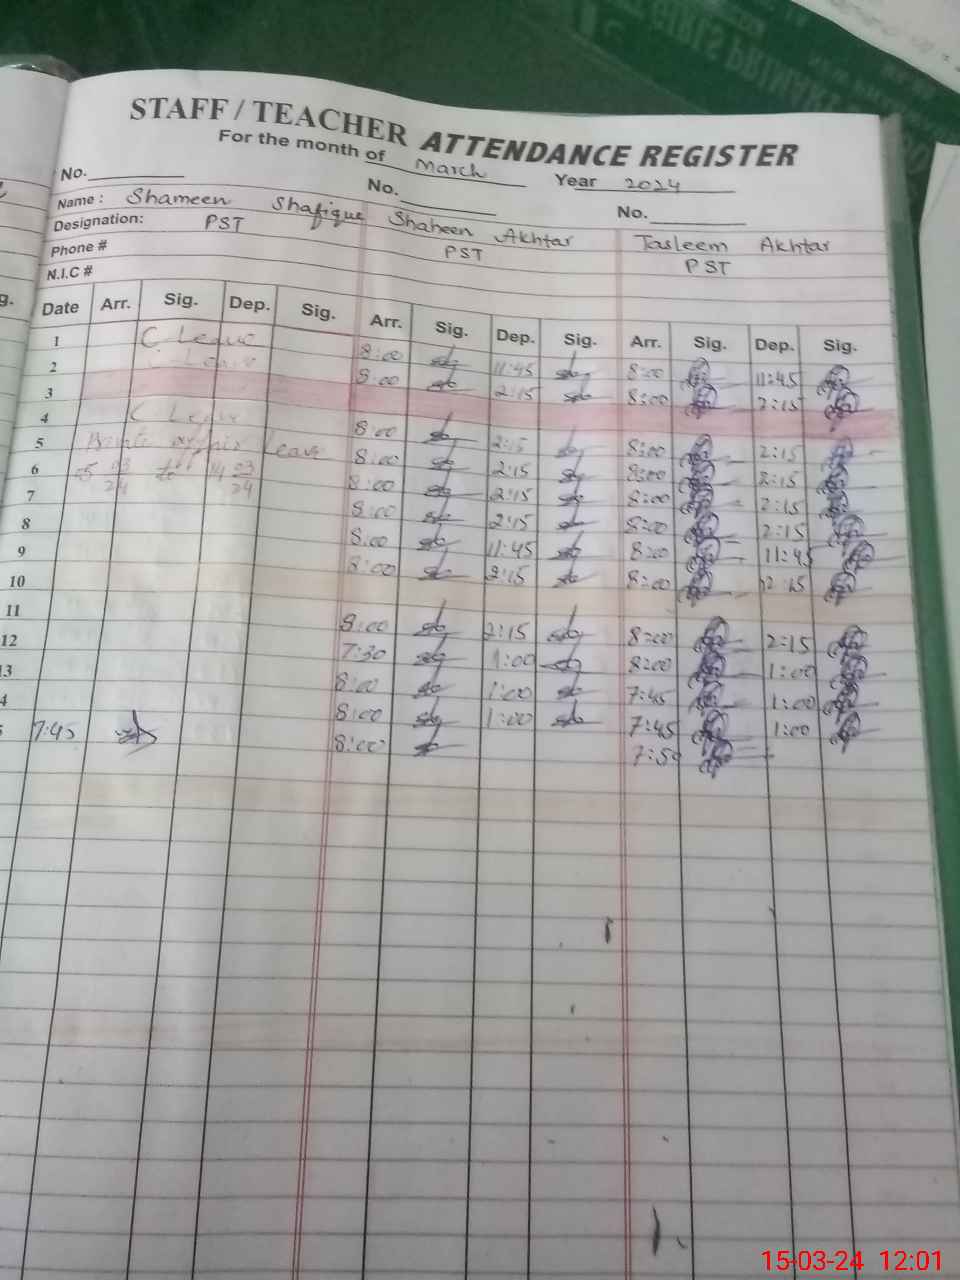 STAFF / TEACHER ATTENDANCE REGISTER
For the month of March Year 2024
No. No. No.
Name: Shameen Shafique Shaheen Akhtar Tasleem Akhtar
Designation: PST PST PST
Phone #
N.I.C #
Date Arr. Sig. Dep. Sig. Arr. Sig. Dep. Sig. Arr. Sig. Dep. Sig.
1 C Leave 8:00 11:45 8:00 11:45
2 C Leave 8:00 2:15 8:00 2:15
3
4 C Leave 8:00 2:15 8:00 2:15
5 Leave 8:00 2:15 8:00 2:15
6 05 03 24 to 14 03 24 8:00 2:15 8:00 2:15
7 8:00 2:15 8:00 2:15
8 8:00 11:45 8:00 11:45
9 8:00 2:15 8:00 2:15
10
11 8:00 2:15 8:00 2:15
12 7:30 1:00 8:00 1:00
13 8:00 1:00 7:45 1:00
4 8:00 1:00 7:45 1:00
7:45 8:00
15-03-24 12:01